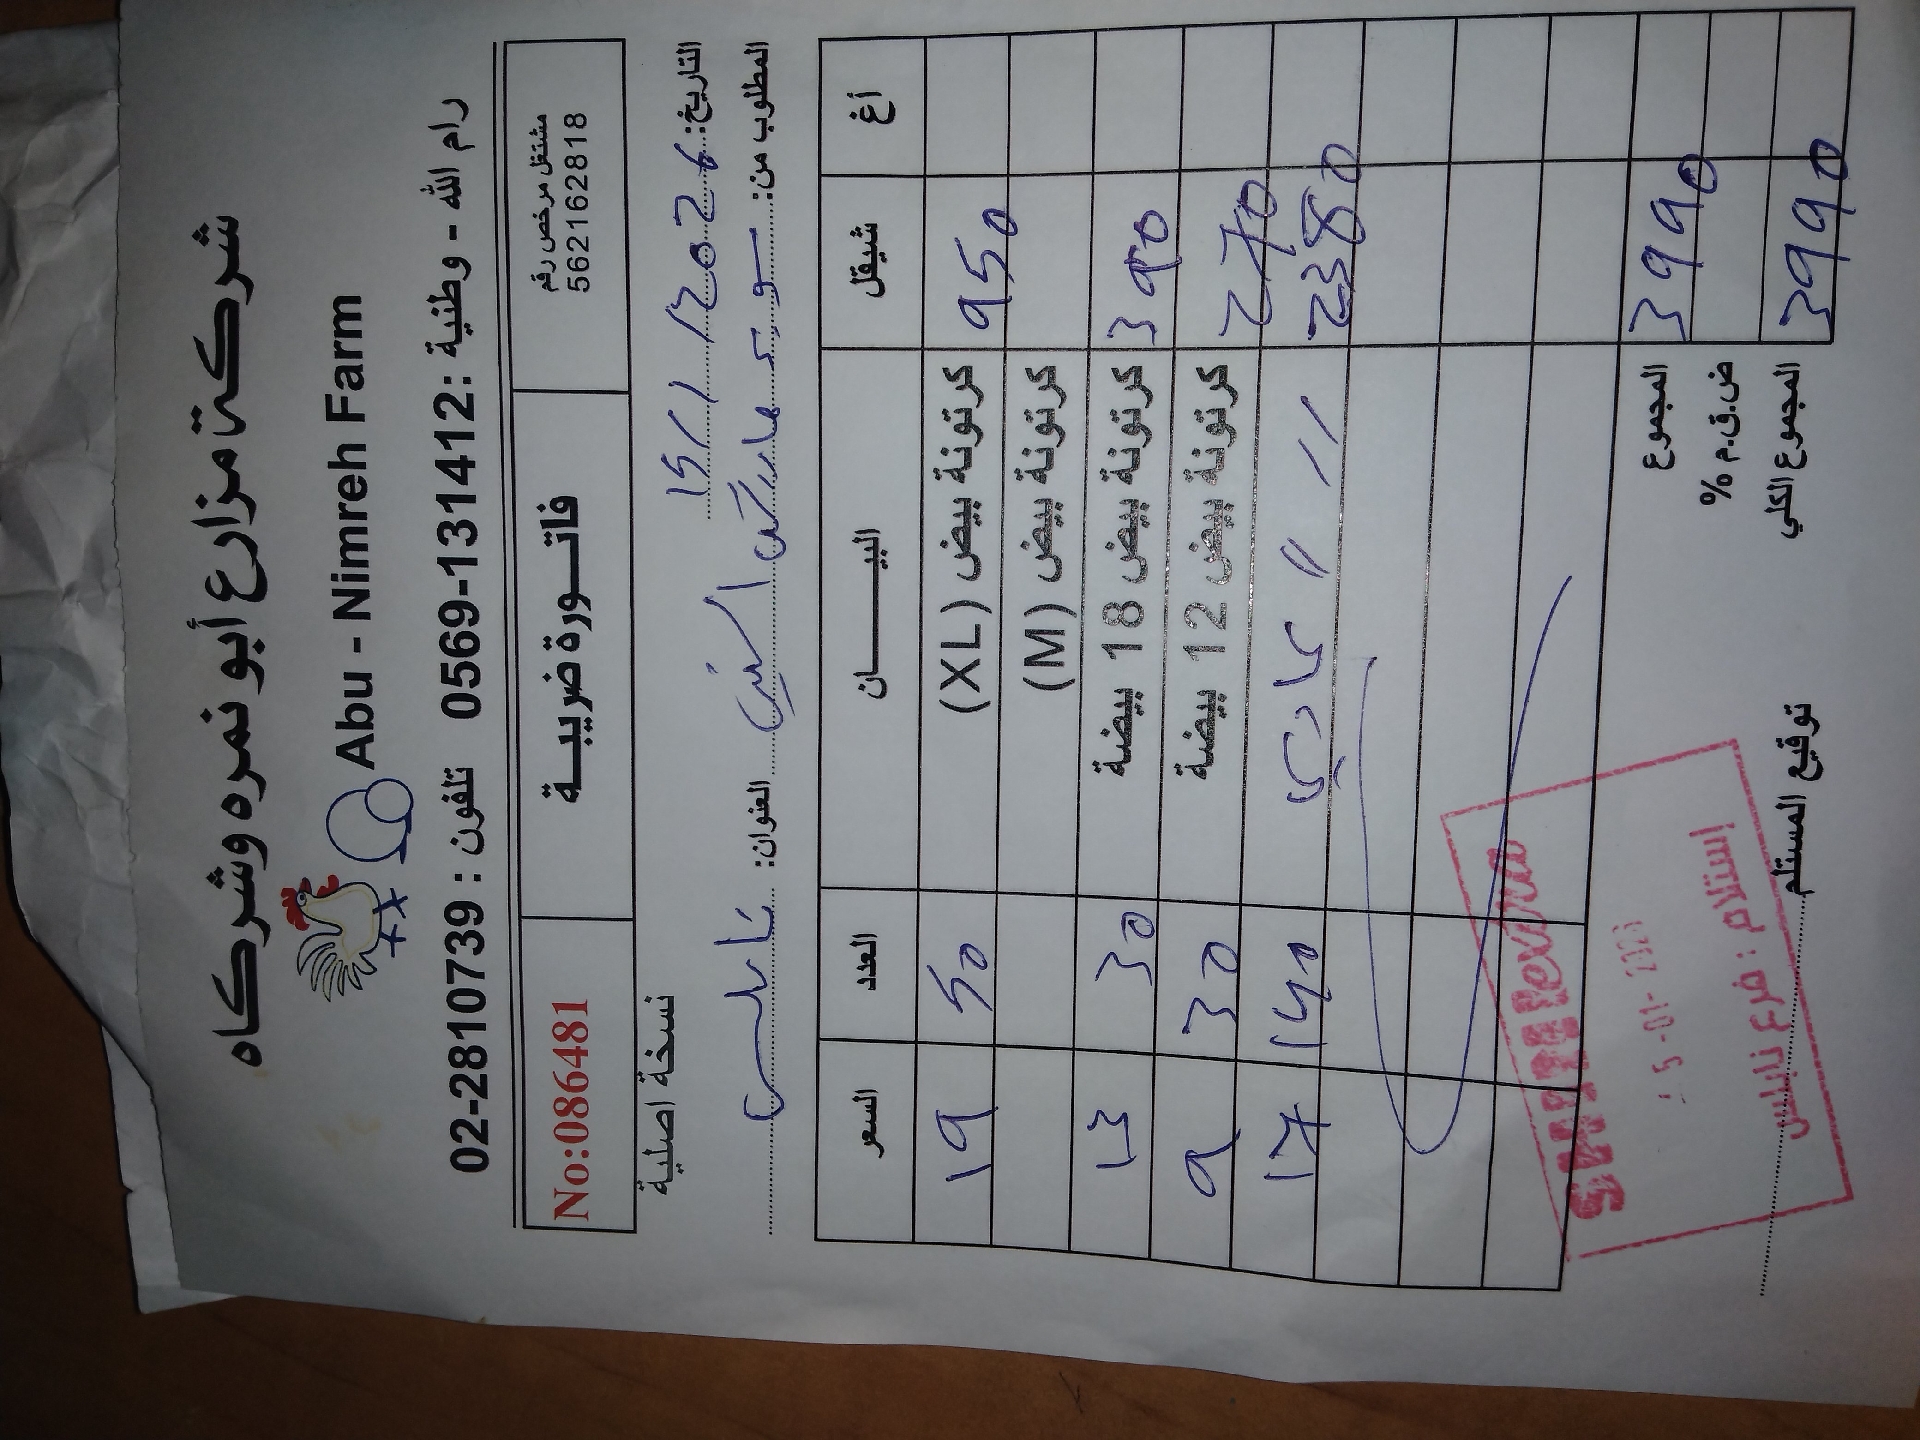 شركة مزارع أبو نمره وشركاه
Abu - Nimreh Farm
رام الله - وطنية : 0569-131412 تلفون : 02-2810739
مشتغل مرخص رقم
562162818
فاتـــورة ضريبيـــة
No:086481
نسخة اصلية
التاريخ: 15/1/2026
المطلوب من: سوبر ماركت العنوان: نابلس
أغ شيقل البيــــــــان العدد السعر
950 كرتونة بيض (XL) 50 19
كرتونة بيض (M)
390 كرتونة بيض 18 بيضة 30 13
270 كرتونة بيض 12 بيضة 30 9
2380 // // 140 17
المجموع 3990
ض.ق.م %
المجموع الكلي 3990
توقيع المستلم
-01-
إستلام : فرع نابلس